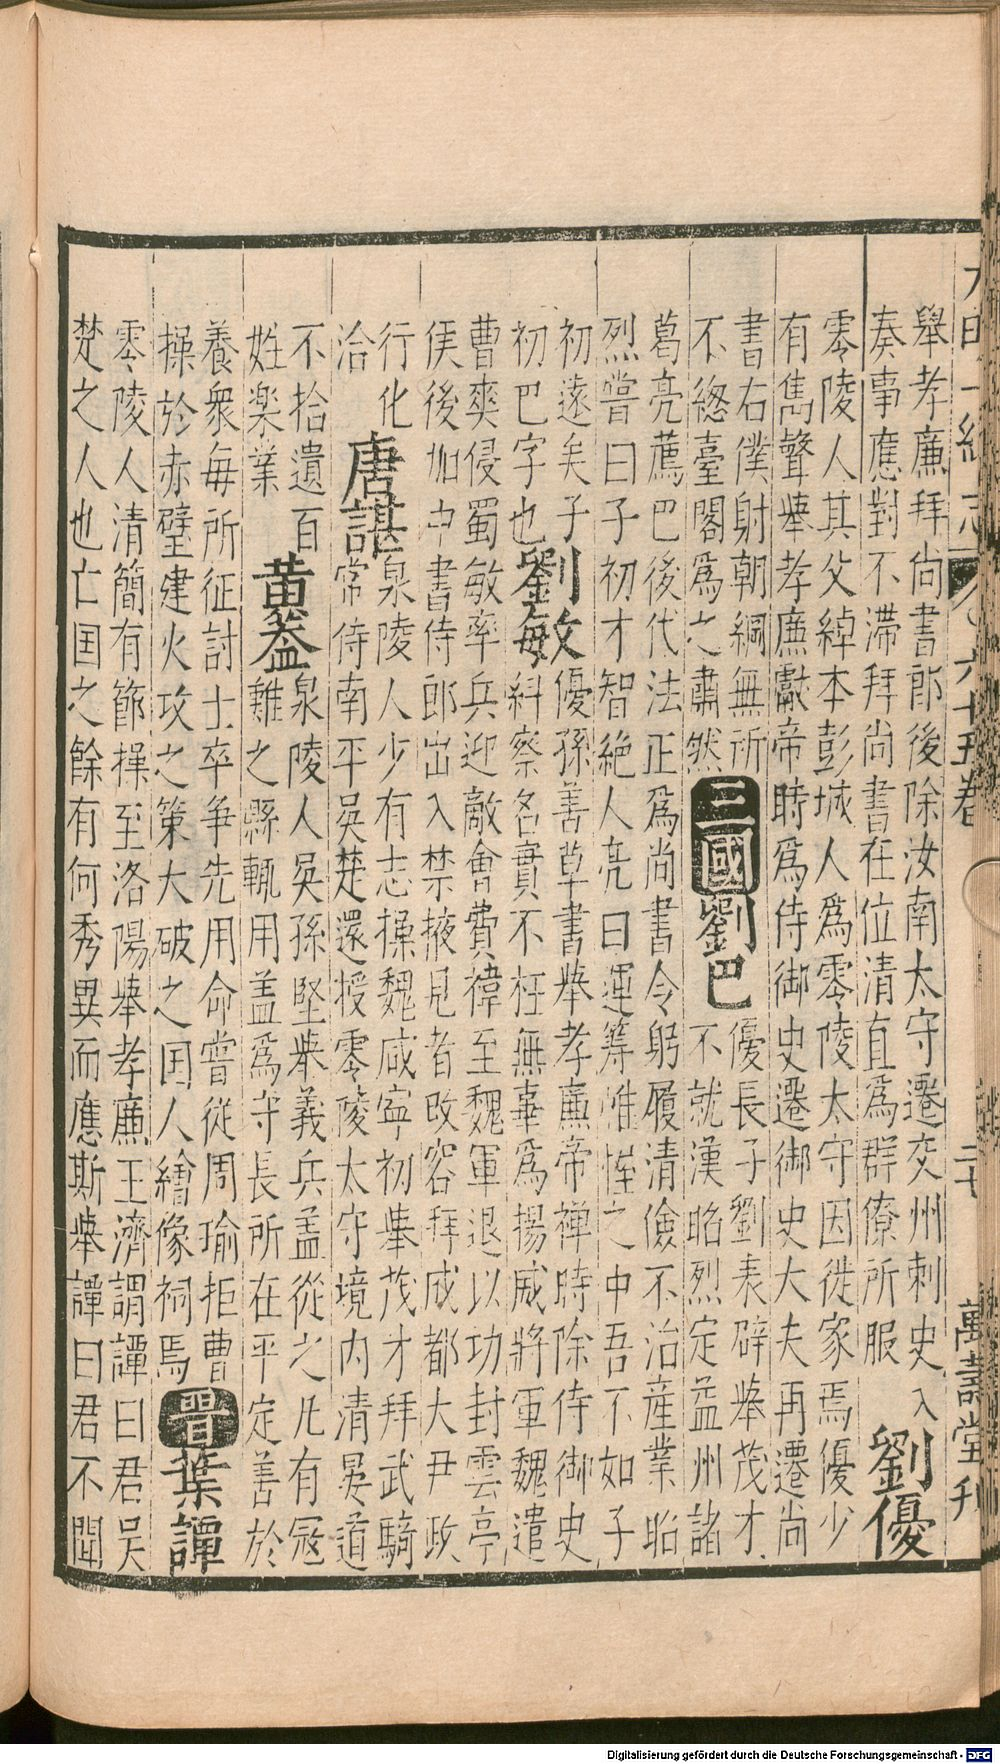 大明一統志 六十五卷 二十 萬壽堂刊
舉孝廉拜尚書郎後除汝南太守遷交州刺史入
奏事應對不滯拜尚書在位清直爲群僚所服
劉優
零陵人其父綽本彭城人爲零陵太守因徙家焉優少
有雋聲舉孝廉獻帝時爲侍御史遷御史大夫再遷尚
書右僕射朝綱無所
不緫臺閣爲之肅然
三國
劉巴
優長子劉表辟舉茂才
不就漢昭烈定益州諸
葛亮薦巴後代法正爲尚書令躬履清儉不治産業昭
烈嘗曰子初才智絶人亮曰運籌惟幄之中吾不如子
初遠矣子
初巴字也
劉敏
優孫善草書舉孝廉帝禪時除侍御史
糾察名實不枉無辜爲揚威將軍魏遣
曹爽侵蜀敏率兵迎敵會費禕至魏軍退以功封雲亭
侯後加中書侍郎出入禁掖見者改容拜成都大尹政
行化
洽
唐諶
泉陵人少有志操魏咸寧初舉茂才拜武騎
常侍南平吳楚還授零陵太守境内清晏道
不拾遺百
姓楽業
黄盖
泉陵人吳孫堅舉義兵盖從之凡有冦
難之縣輒用盖爲守長所在平定善於
養衆每所征討士卒爭先用命嘗從周瑜拒曹
操於赤壁建火攻之策大破之囯人繪像祠焉
晋
葉譚
零陵人清簡有節操至洛陽舉孝廉王濟謂譚曰君吳
楚之人也亡囯之餘有何秀異而應斯舉譚曰君不聞
Digitalisierung gefördert durch die Deutsche Forschungsgemeinschaft - DFG